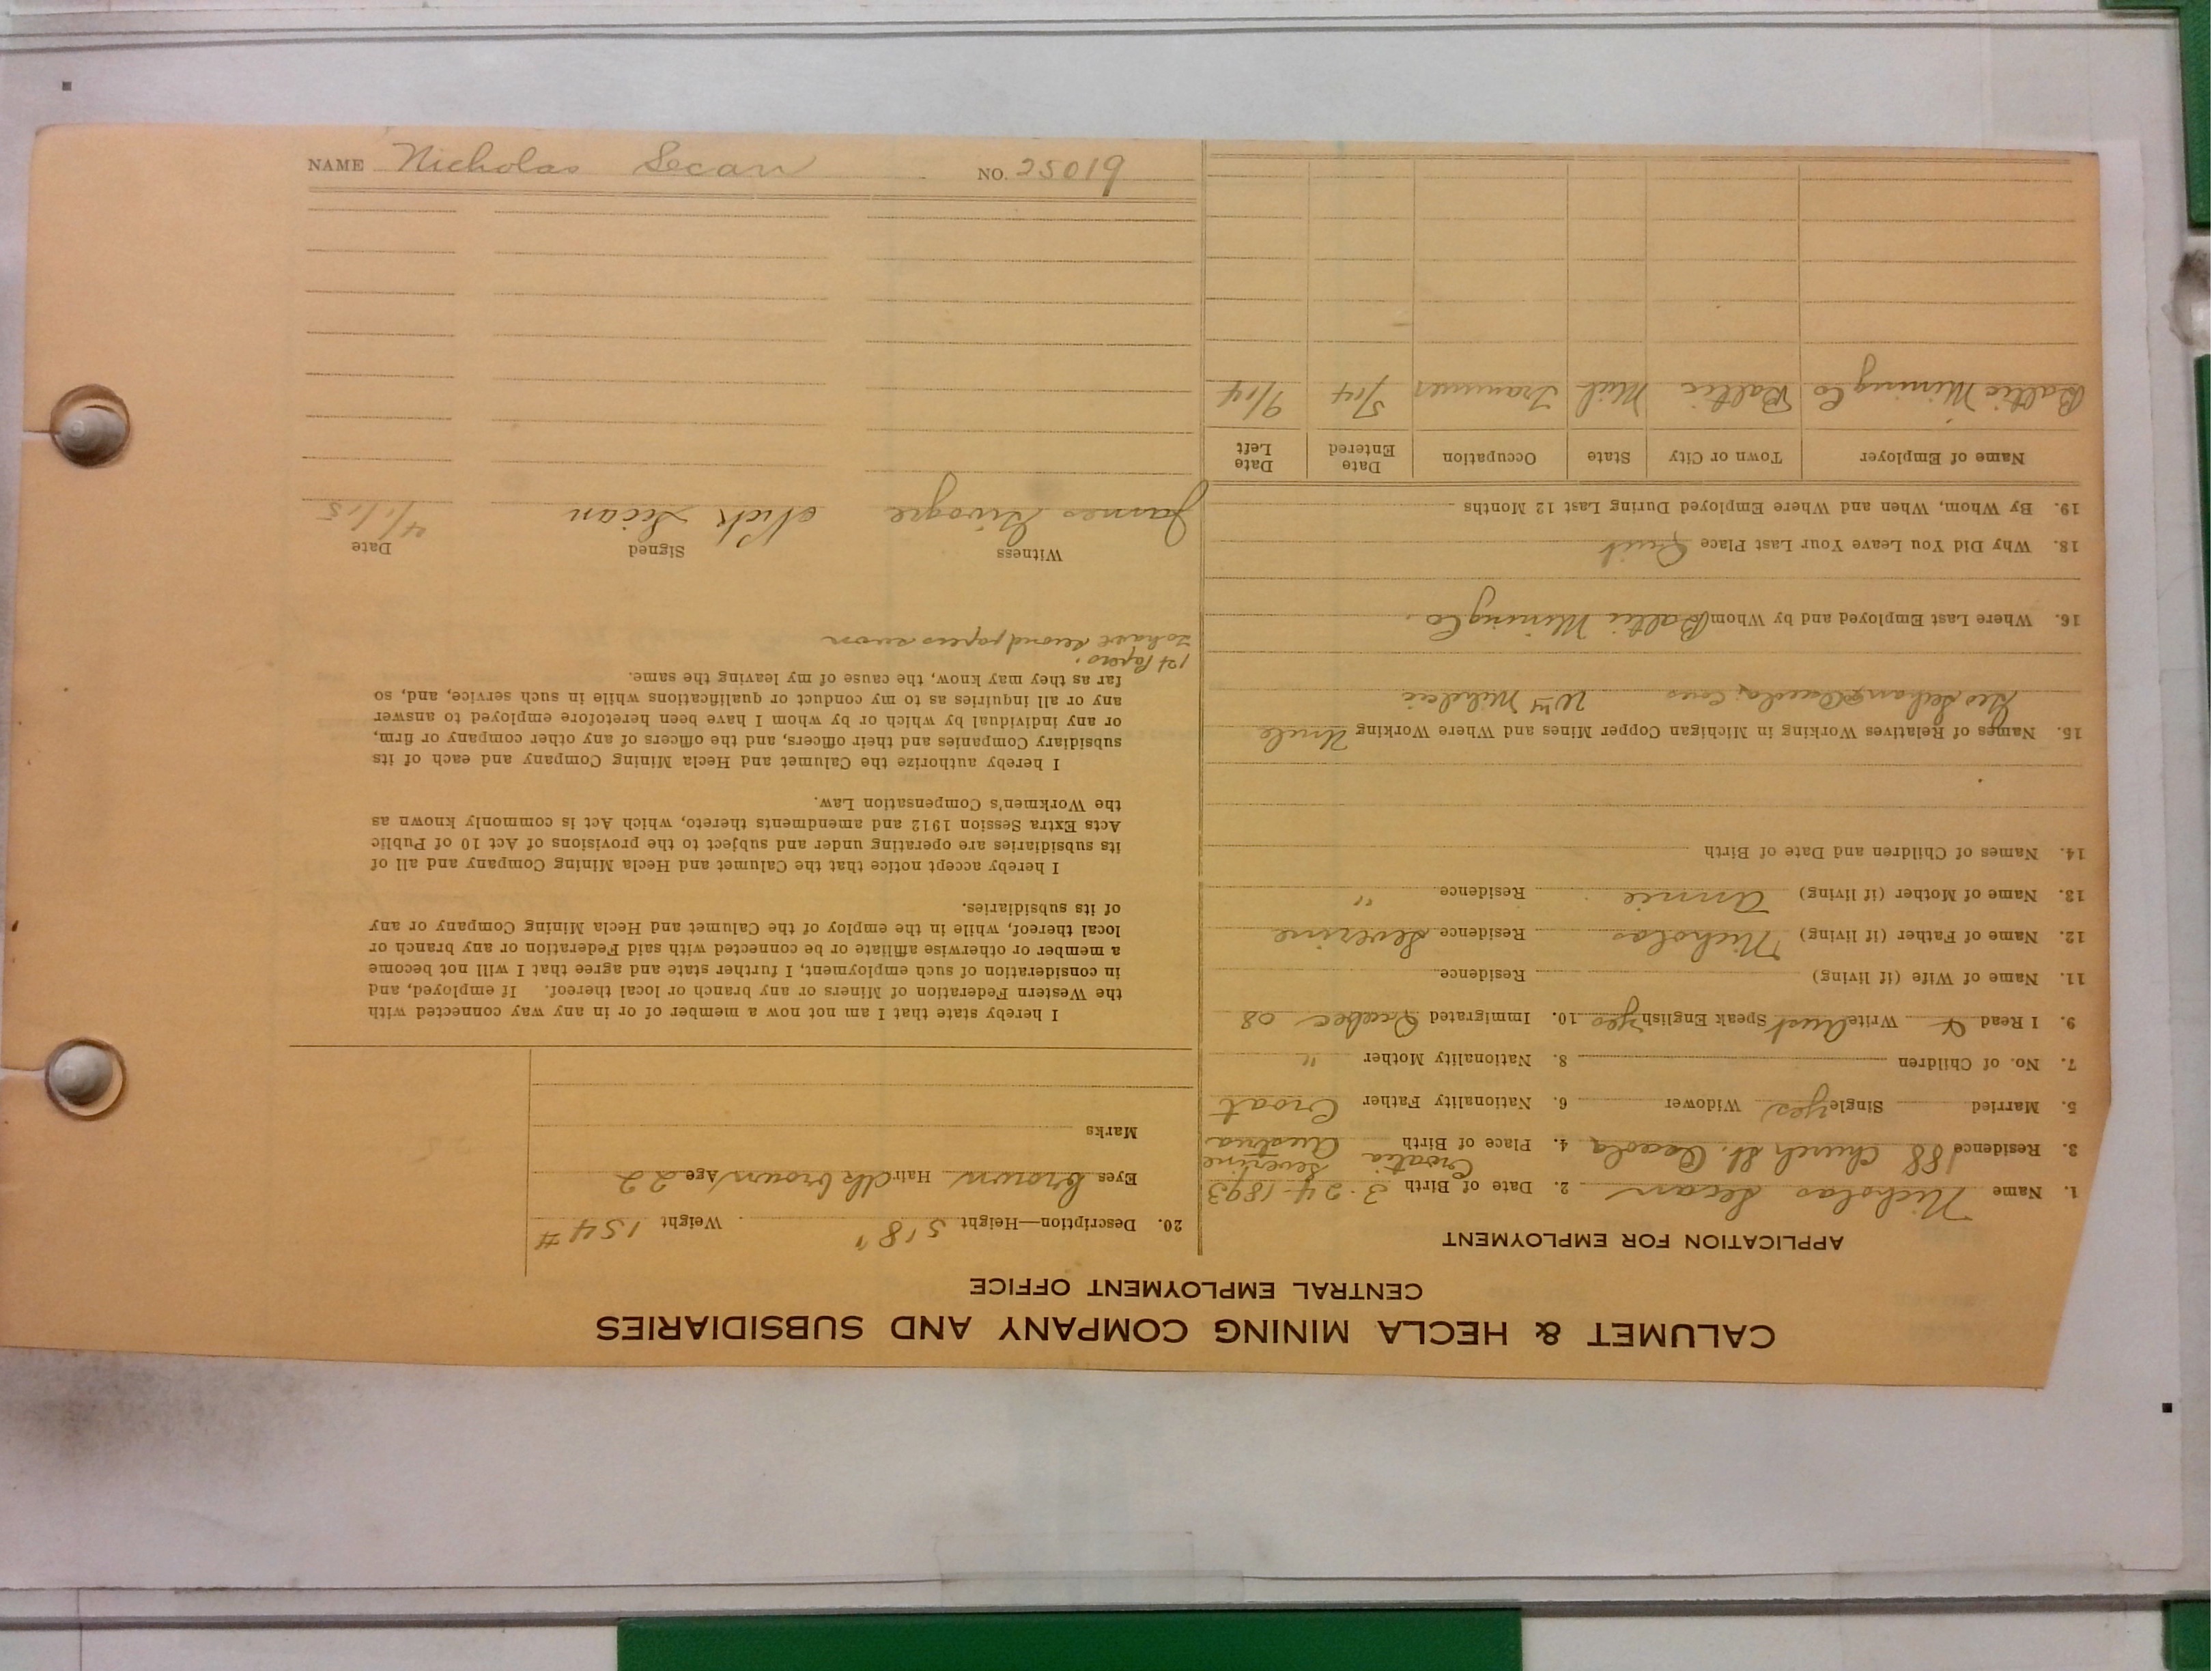 NAME Nicholas Secan NO. 25019
CALUMET & HECLA MINING COMPANY AND SUBSIDIARIES
CENTRAL EMPLOYMENT OFFICE
APPLICATION FOR EMPLOYMENT
1. Name Nicholas Secan 2. Date of Birth 3-24-1893
3. Residence 188 Church St. Osceola 4. Place of Birth Croatia Severine Austria
5. Married Single yes Widower 6. Nationality Father Croat
7. No. of Children 8. Nationality Mother "
9. I Read & Write Aust Speak English yes 10. Immigrated Quebec 08
11. Name of Wife (if living) Residence
12. Name of Father (if living) Nicholas Residence Severine
13. Name of Mother (if living) Annie Residence "
14. Names of Children and Date of Birth
15. Names of Relatives Working in Michigan Copper Mines and Where Working Uncle
Geo Osceola Cons Wm
16. Where Last Employed and by Whom Baltic Mining Co.
18. Why Did You Leave Your Last Place Quit
19. By Whom, When and Where Employed During Last 12 Months
Name of Employer Town or City State Occupation Date Entered Date Left
Baltic Mining Co Baltic Mich Trammer 5/14 9/14
20. Description—Height 5'8" Weight 154#
Eyes brown Hair dk brown Age 22
Marks
I hereby state that I am not now a member of or in any way connected with
the Western Federation of Miners or any branch or local thereof. If employed, and
in consideration of such employment, I further state and agree that I will not become
a member or otherwise affiliate or be connected with said Federation or any branch or
local thereof, while in the employ of the Calumet and Hecla Mining Company or any
of its subsidiaries.
I hereby accept notice that the Calumet and Hecla Mining Company and all of
its subsidiaries are operating under and subject to the provisions of Act 10 of Public
Acts Extra Session 1912 and amendments thereto, which Act is commonly known as
the Workmen's Compensation Law.
I hereby authorize the Calumet and Hecla Mining Company and each of its
subsidiary Companies and their officers, and the officers of any other company or firm,
or any individual by which or by whom I have been heretofore employed to answer
any or all inquiries as to my conduct or qualifications while in such service, and, so
far as they may know, the cause of my leaving the same.
1st Papers.
to have second papers soon
Witness Signed Date
James Nick Secan 4/1/15